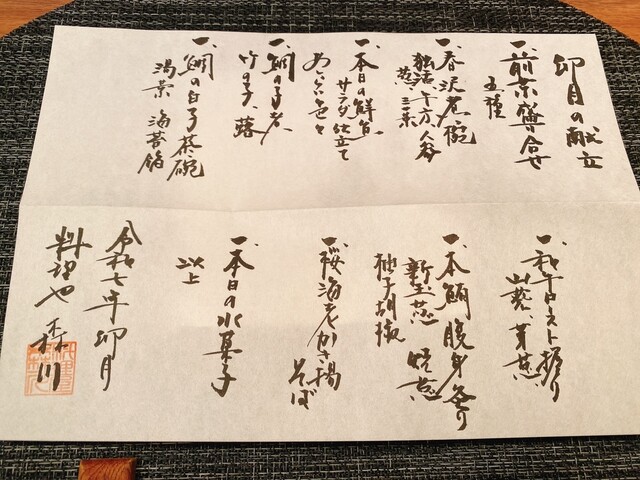 卯月の献立
一、前菜盛り合せ
五種
一、春沢煮椀
独活 千六人参
葱 三つ葉
一、本日の鮮魚
サラダ仕立て
あしらい色々
一、鯛の子煮
竹の子、蕗
一、鯛の白子茶碗
湯葉 海苔餡
一、和牛ロースト握り
山葵、芽葱
一、本鮪腹身炙り
新玉葱 焼葱
柚子胡椒
一、桜海老かき揚
そば
一、本日の水菓子
以上
令和七年 卯月
料理や 森川